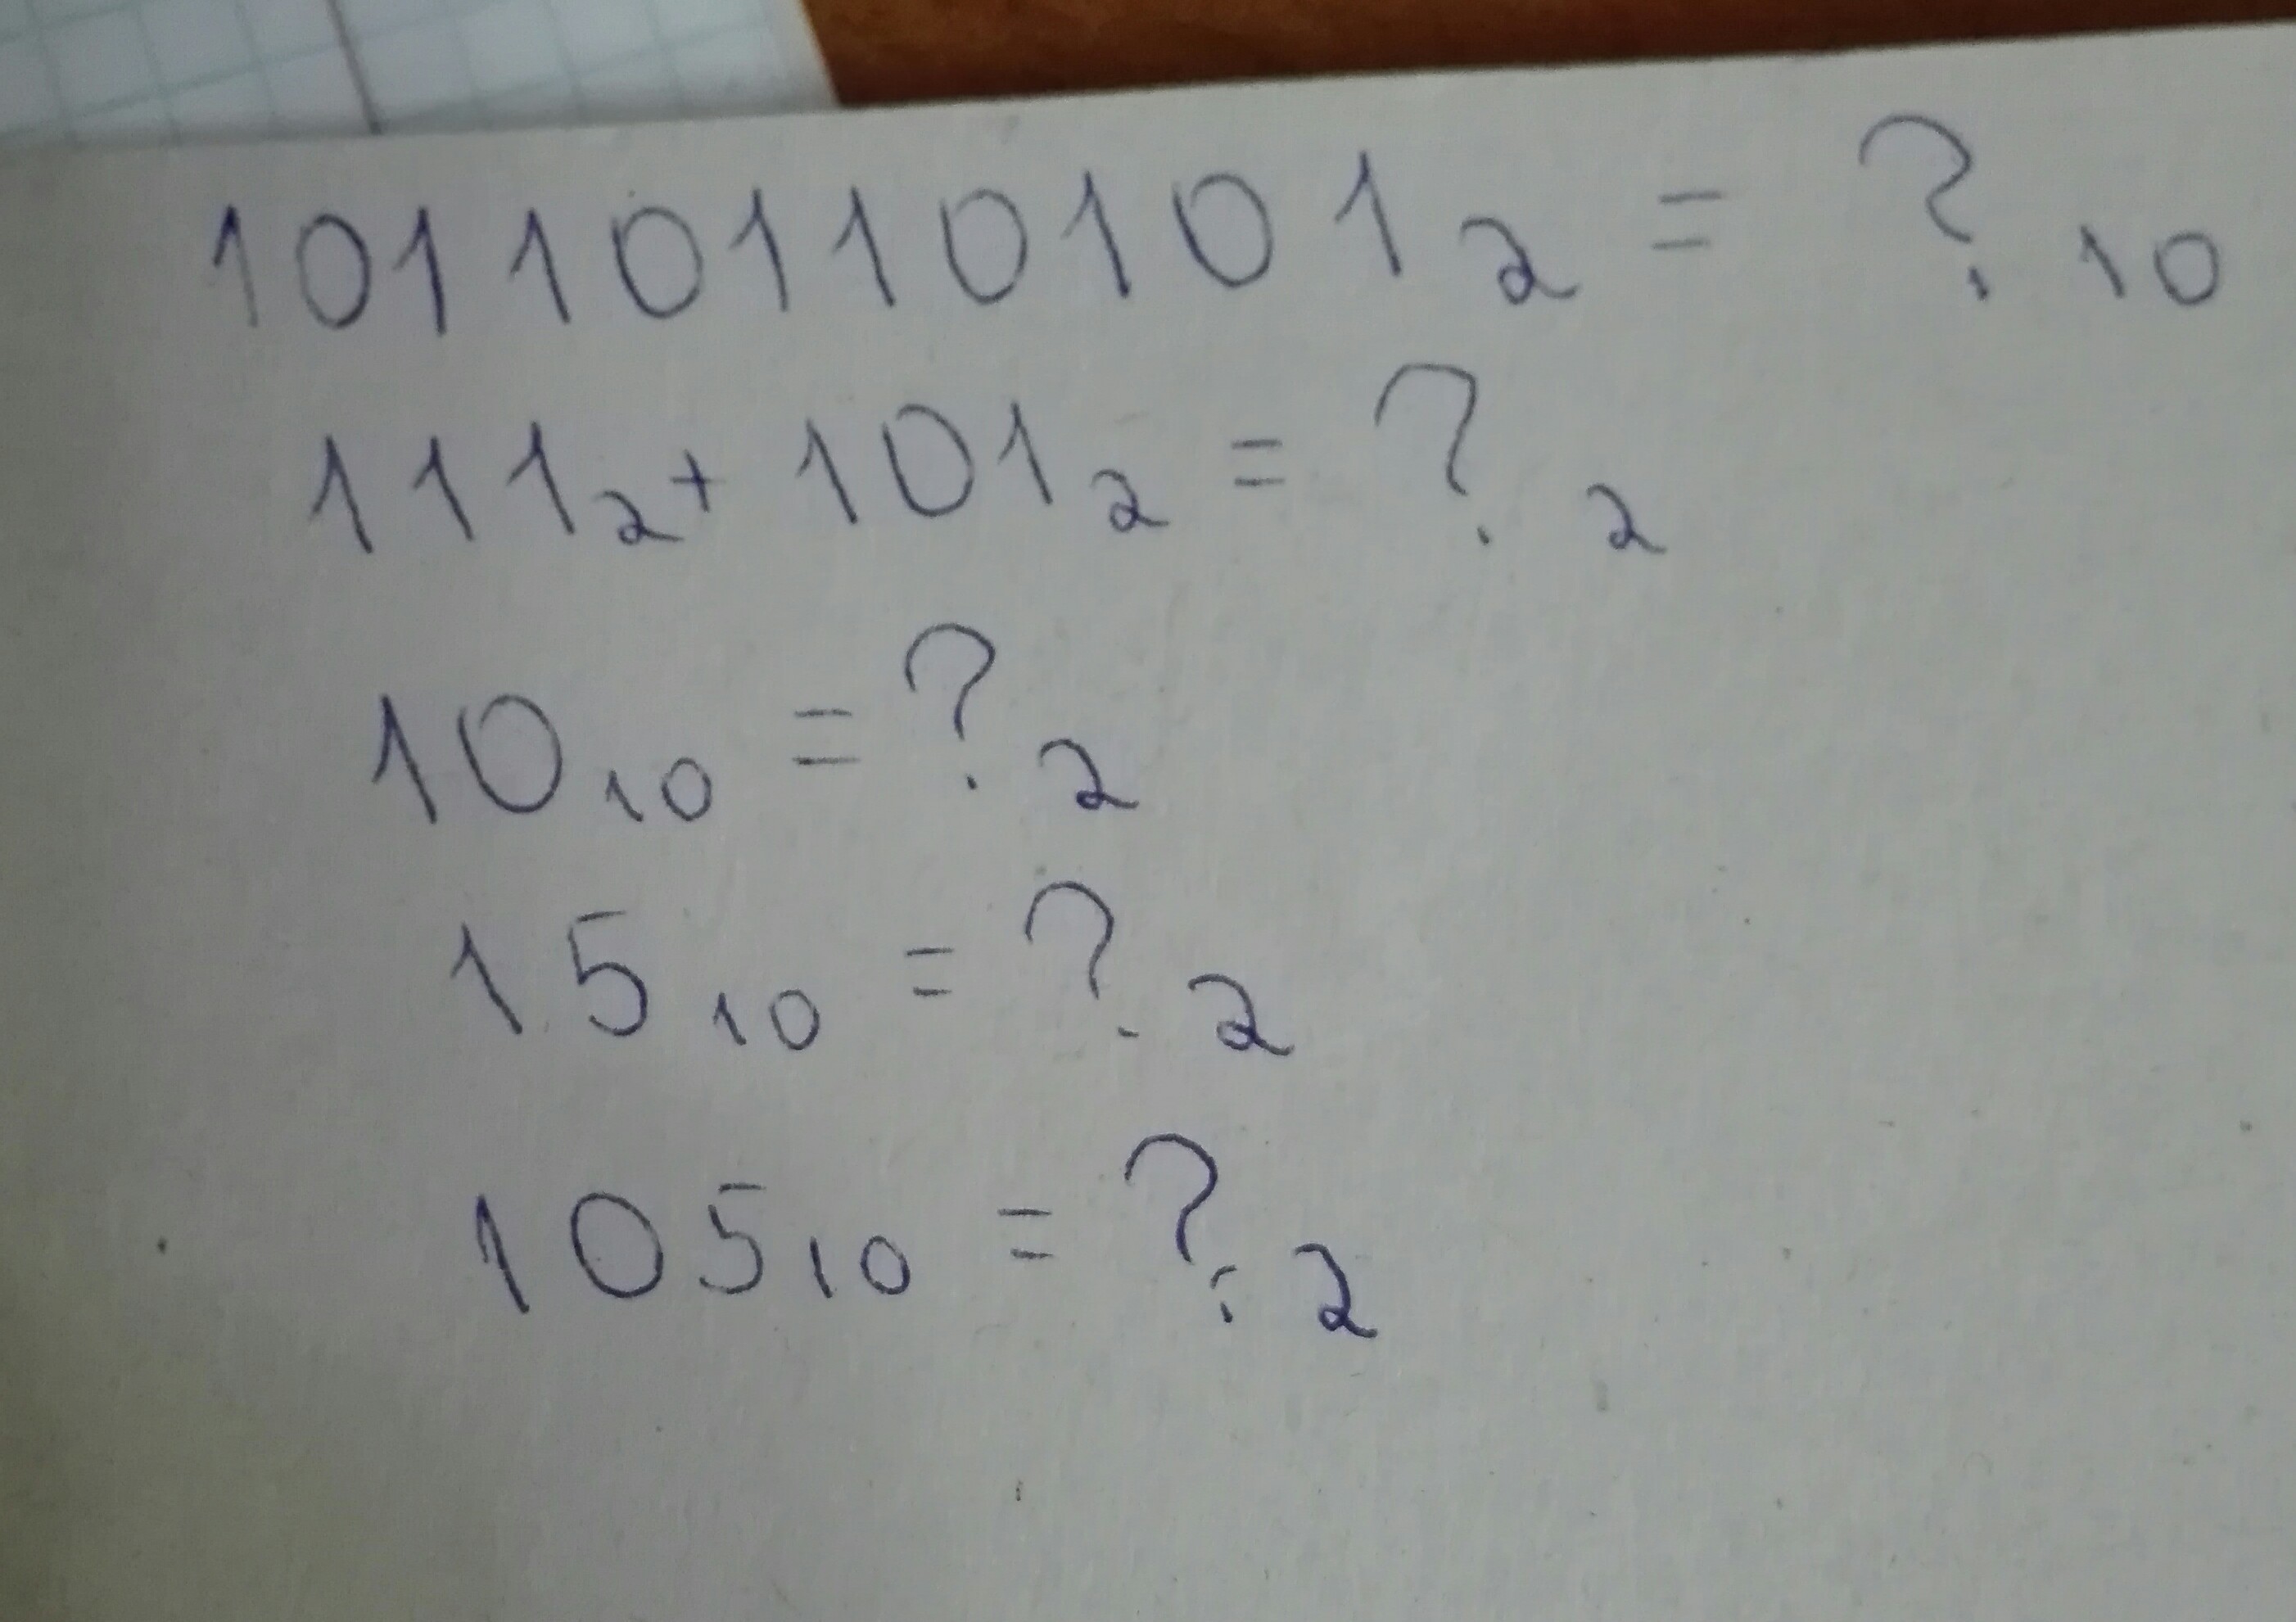 10110110101₂ = ?₁₀
111₂ + 101₂ = ?₂
10₁₀ = ?₂
15₁₀ = ?₂
105₁₀ = ?₂